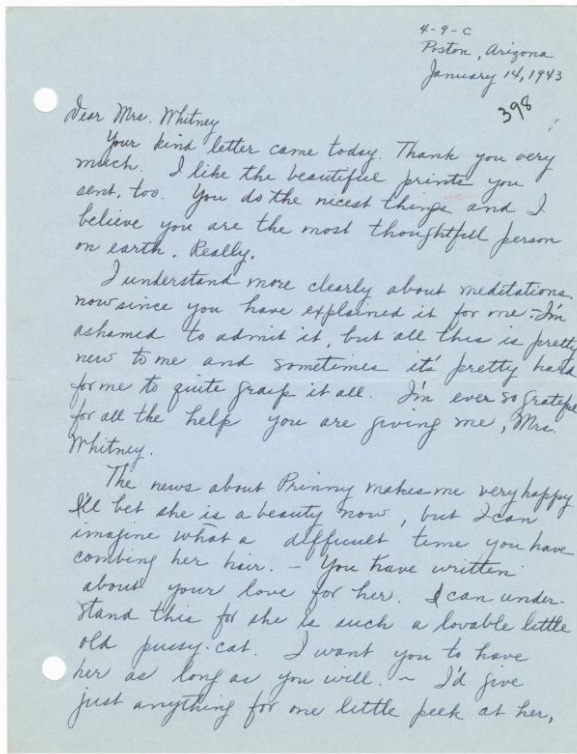 4-9-C
Poston, Arizona
January 14, 1943
398
Dear Mrs. Whitney
Your kind letter came today. Thank you very
much. I like the beautiful prints you
sent, too. You do the nicest things and I
believe you are the most thoughtful person
on earth. Really.
I understand more clearly about meditations
now since you have explained it for me. I'm
ashamed to admit it, but all this is pretty
new to me and sometimes it's pretty hard
for me to quite grasp it all. I'm ever so grateful
for all the help you are giving me, Mrs.
Whitney.
The news about Prinny makes me very happy
I'll bet she is a beauty now, but I can
imagine what a difficult time you have
combing her hair. — You have written
about your love for her. I can under-
stand this for she is such a lovable little
old pussy-cat. I want you to have
her as long as you will. ~ I'd give
just anything for one little peek at her,